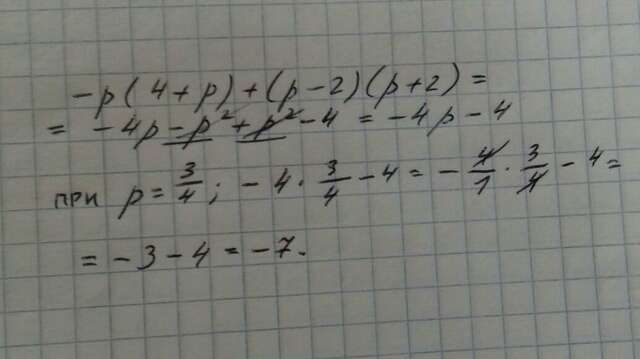 -p(4+p)+(p-2)(p+2)=
= -4p-p²+p²-4 = -4p-4
при p=3/4; -4·3/4-4=-4/1·3/4-4=
= -3-4=-7.